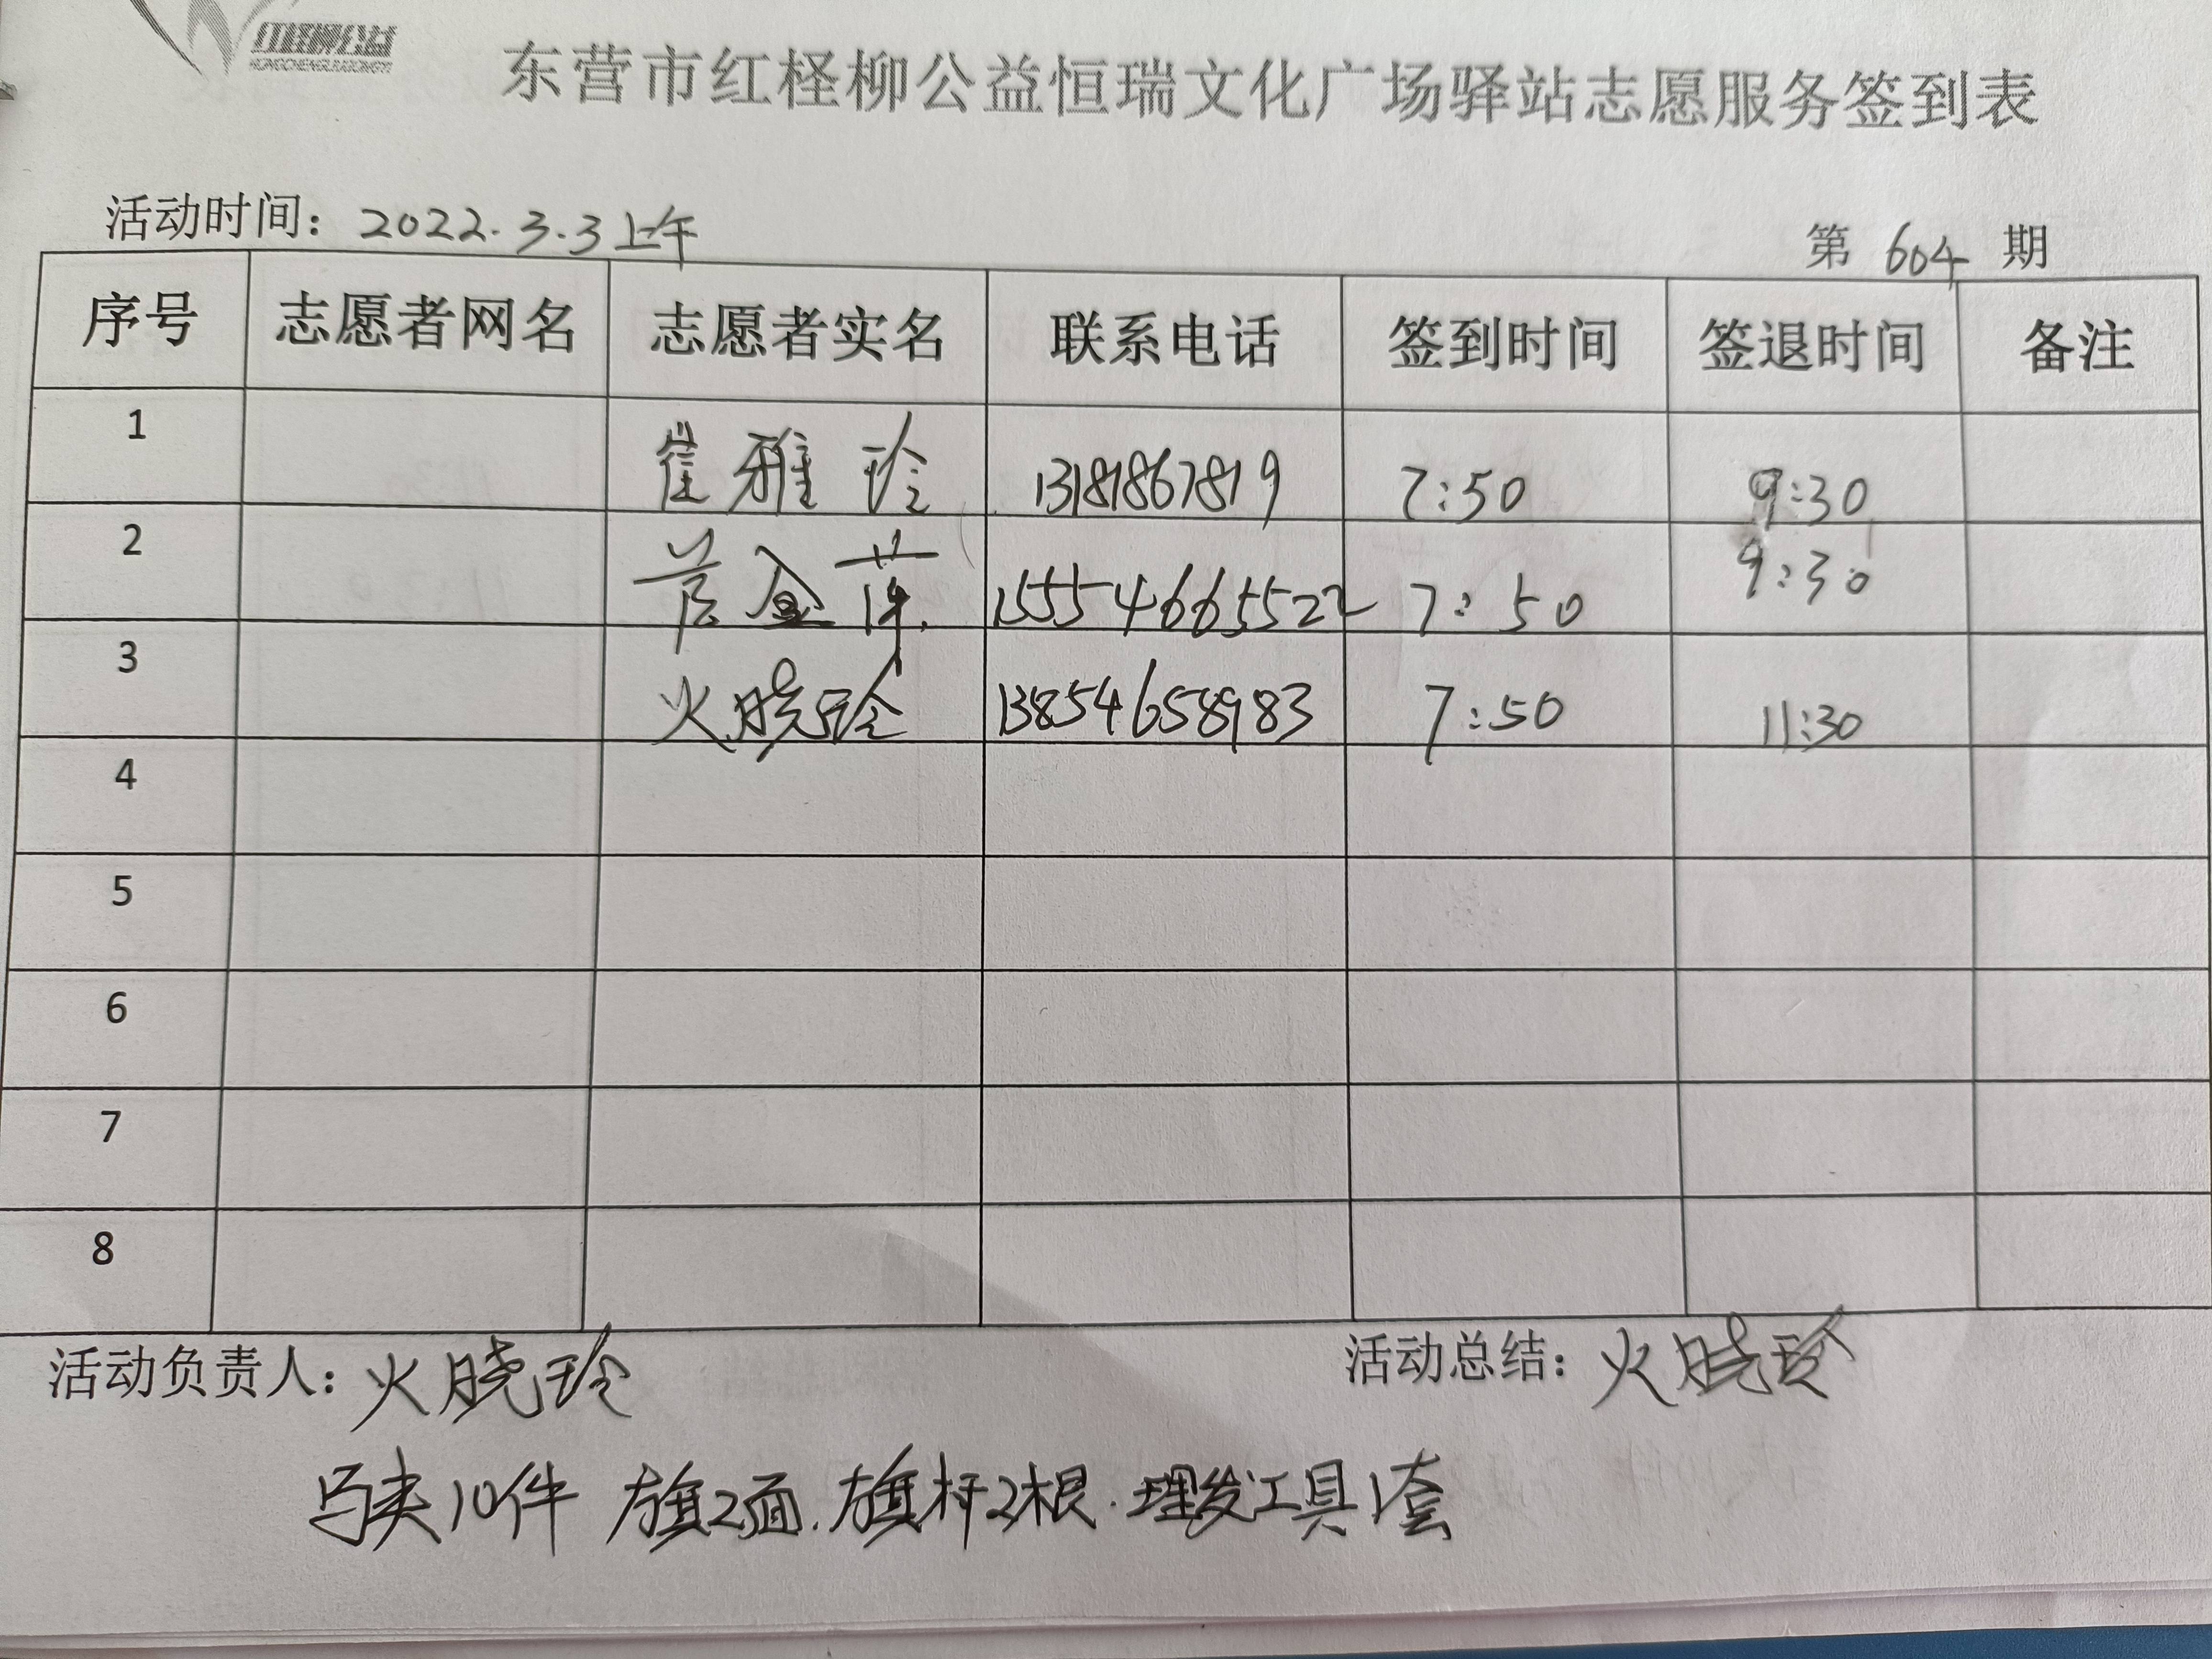 红柽柳公益
HONGCHENGLIUGONGYI
东营市红柽柳公益恒瑞文化广场驿站志愿服务签到表
活动时间：2022.3.3上午
第 604 期
序号 志愿者网名 志愿者实名 联系电话 签到时间 签退时间 备注
1 崔雅玲 13181867819 7:50 9:30
2 15554665522 7:50 9:30
3 火晓玲 13854658983 7:50 11:30
4
5
6
7
8
活动负责人：火晓玲 活动总结：火晓玲
马夹10件 旗2面.旗杆2根.理发工具1套